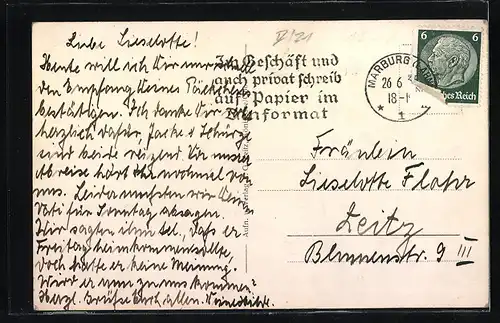 V/21
Liebe Lieselotte!
Heute will ich Dir nur schnell
den Empfang Deines Päckchens
bestätigen. Ich danke Dir sehr
herzlich dafür, Jacke u. Schürze
sind beide reizend. Vor unserer
Abreise hört Ihr nochmal von
uns. Leider mußten wir den
Vati für Sonntag absagen.
Wir sagten ihm tel., daß er
Freitag heimkommen sollte,
doch hatte er keine Meinung.
Wird er nun zu uns kommen?
Herzl. Grüße Euch allen.
Im Geschäft und
auch privat schreib
auf Papier im
Dinformat
MARBURG
26 6
18-1
6 6
Deutsches Reich
Fräulein
Lieselotte Flohr
Zeitz
Blumenstr. 9 III